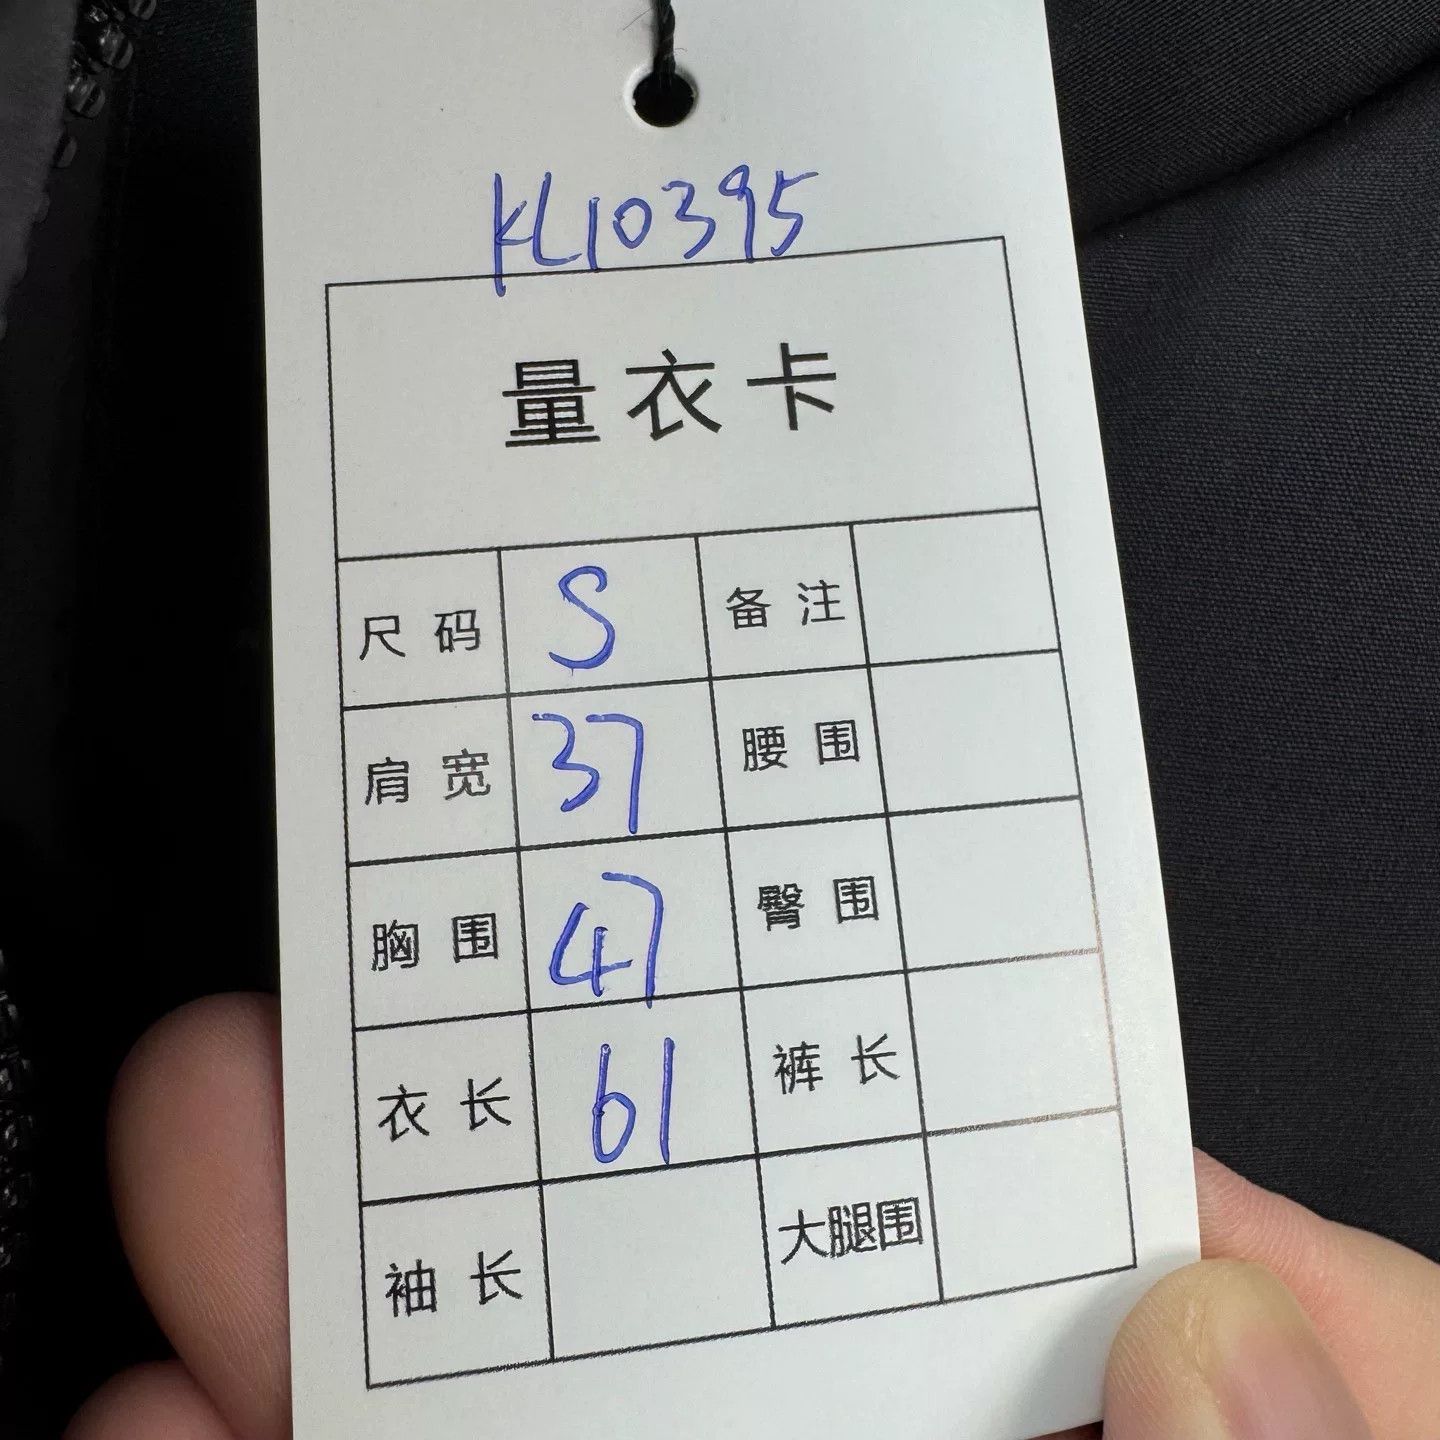 KL10395
量衣卡
尺码 S 备注
肩宽 37 腰围
胸围 47 臀围
衣长 61 裤长
袖长 大腿围